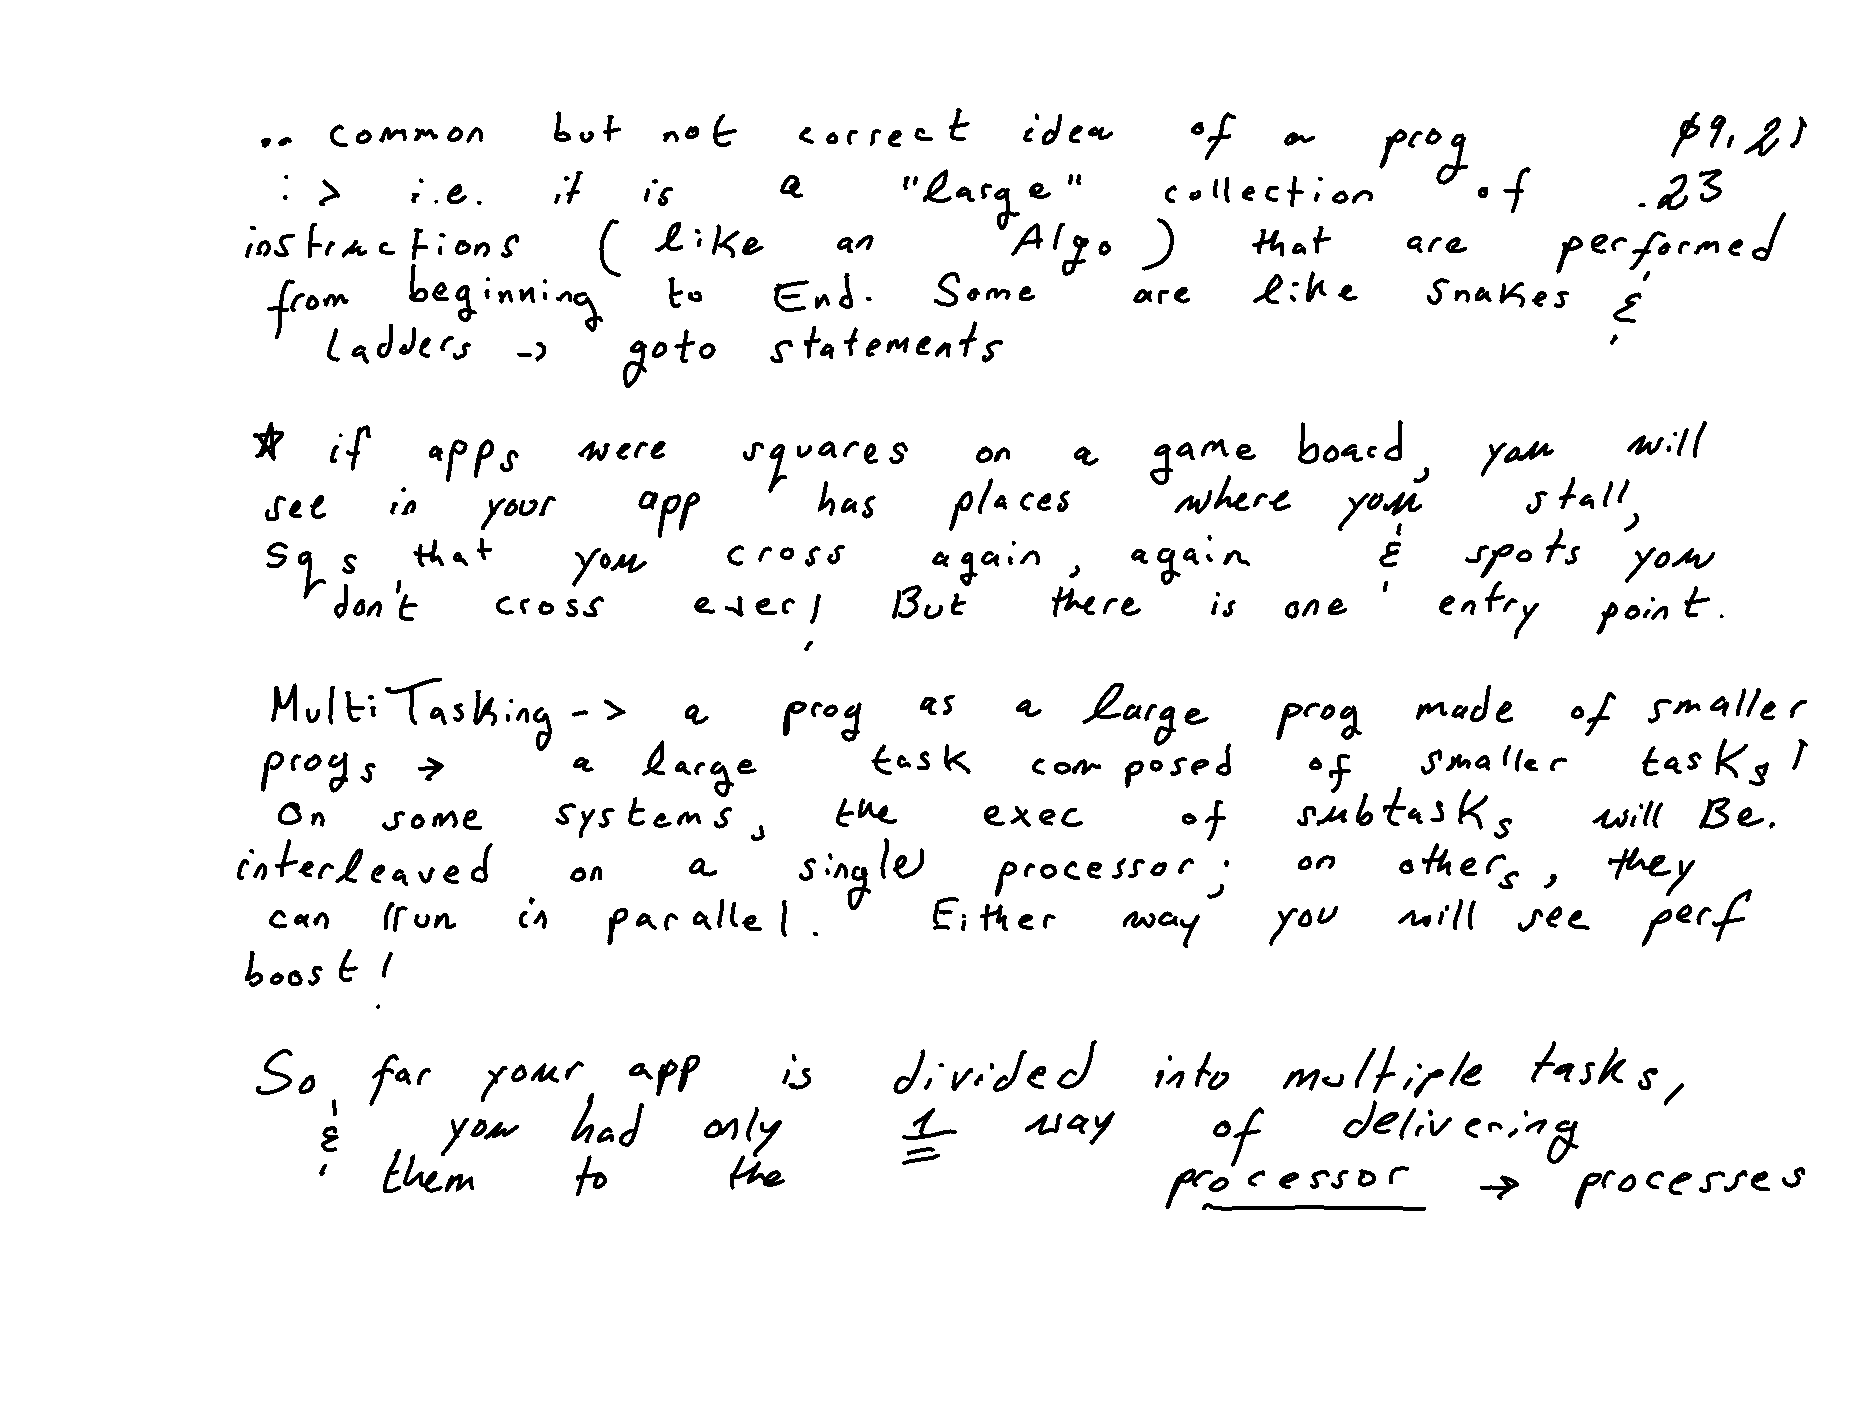 .. common but not correct idea of a prog
:> i.e. it is a "large" collection of .23
instructions (like an Algo) that are performed
from beginning to End. Some are like snakes &
Ladders -> goto statements
* if apps were squares on a game board, you will
see in your app has places where you stall,
sqs that you cross again, again & spots you
don't cross ever! But there is one entry point.
MultiTasking -> a prog as a large prog made of smaller
progs -> a large task composed of smaller tasks!
On some systems, the exec of subtasks will Be.
interleaved on a single processor; on others, they
can run in parallel. Either way you will see perf
boost!
So far your app is divided into multiple tasks,
& you had only 1 way of delivering
them to the processor -> processes